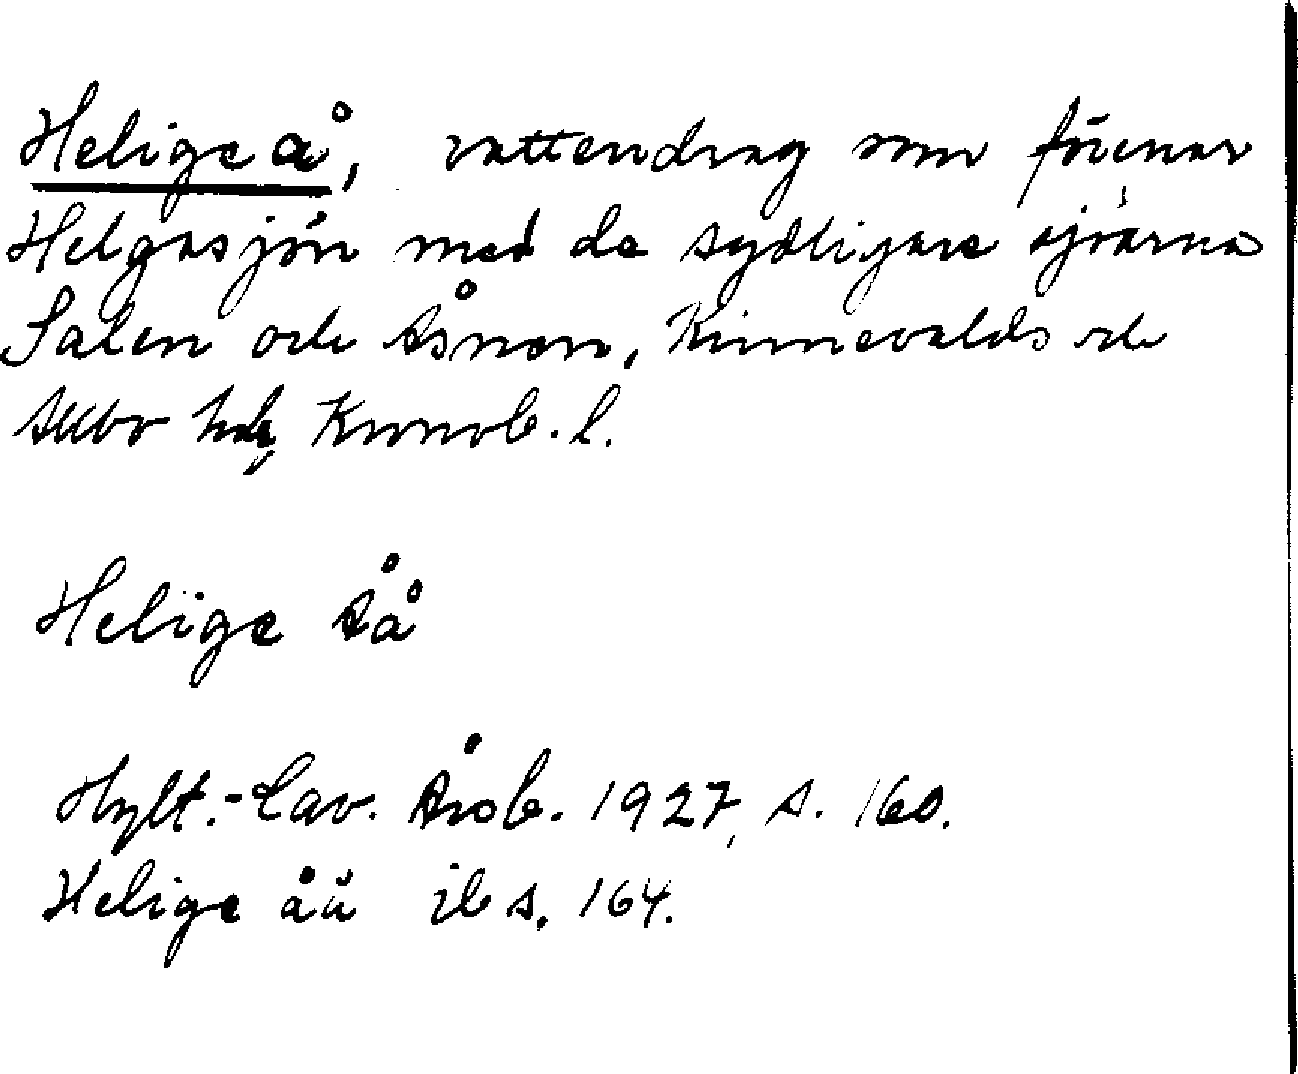 Helige å, vattendrag som förenar
Helgasjön med de sydligare sjöarna
Salen och Åsnen, Kinnevalds och
Allbo hdr, Kronob. l.
Helige Åå
Hylt.-Cav. Årsb. 1927, s. 160.
Helige åå ib s. 164.